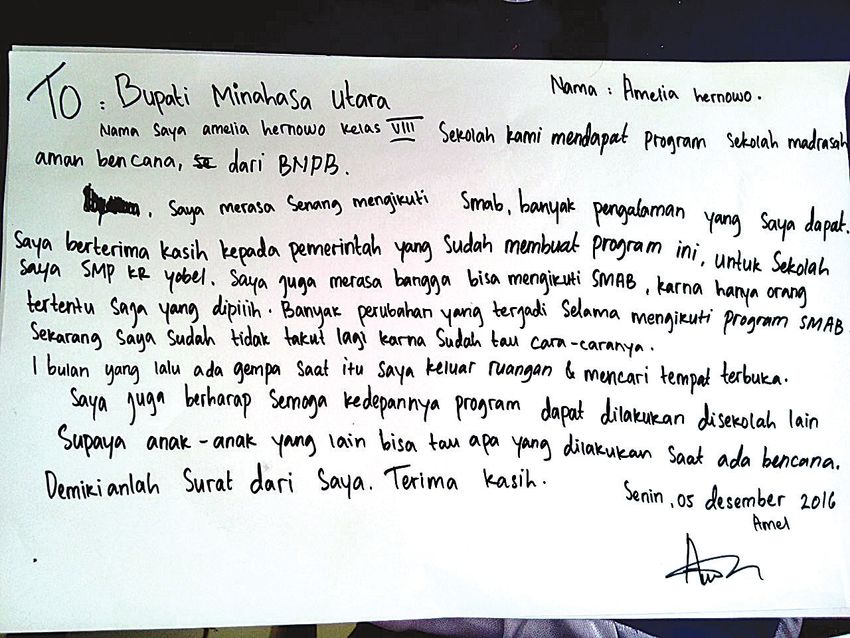 To : Bupati Minahasa Utara
Nama : Amelia hernowo.
Nama Saya amelia hernowo kelas VIII Sekolah kami mendapat program sekolah madrasah
aman bencana, dari BNPB.
, Saya merasa senang mengikuti Smab, banyak pengalaman yang saya dapat.
Saya berterima kasih kepada pemerintah yang sudah membuat program ini, untuk Sekolah
Saya SMP KR yobel. Saya juga merasa bangga bisa mengikuti SMAB, karna hanya orang
tertentu saja yang dipilih. Banyak perubahan yang tergadi selama mengikuti program SMAB.
Sekarang Saya sudah tidak takut lagi karna Sudah tau cara-caranya.
1 bulan yang lalu ada gempa saat itu saya keluar ruangan & mencari tempat terbuka.
Saya juga berharap semoga kedepannya program dapat dilakukan disekolah lain
Supaya anak-anak yang lain bisa tau apa yang dilakukan saat ada bencana.
Demikianlah Surat dari Saya. Terima kasih.
Senin, 05 desember 2016
Amel